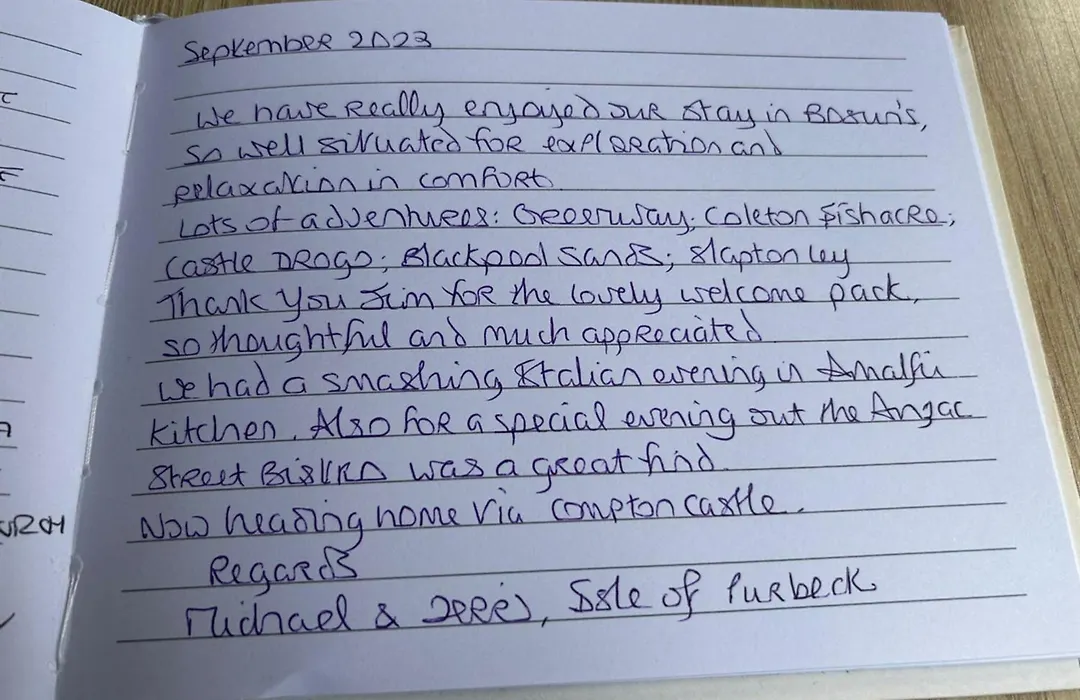 September 2023
We have really enjoyed our stay in Bosun's,
so well situated for exploration and
relaxation in comfort.
Lots of adventures: Greenway; Coleton Fishacre;
Castle Drogo; Blackpool Sands; Slapton Ley
Thank you Jim for the lovely welcome pack,
so thoughtful and much appreciated
We had a smashing Italian evening in Amalfi
Kitchen. Also for a special evening out the Anzac
Street Bistro was a great find.
Now heading home via Compton Castle.
Regards
Michael &
Isle of Purbeck